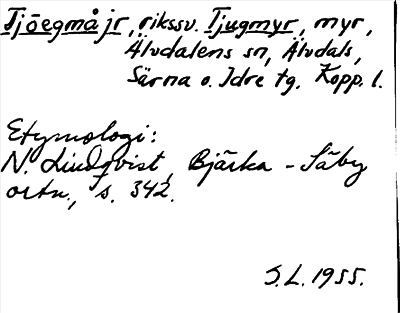 Tjöegmåjr, rikssv. Tjugmyr, myr,
Älvdalens sn, Älvdals,
Särna o. Idre tg. Kopp. l.
Etymologi:
N. Lindqvist, Bjärka-Säby
ortn., s. 342.
S.L. 1955.